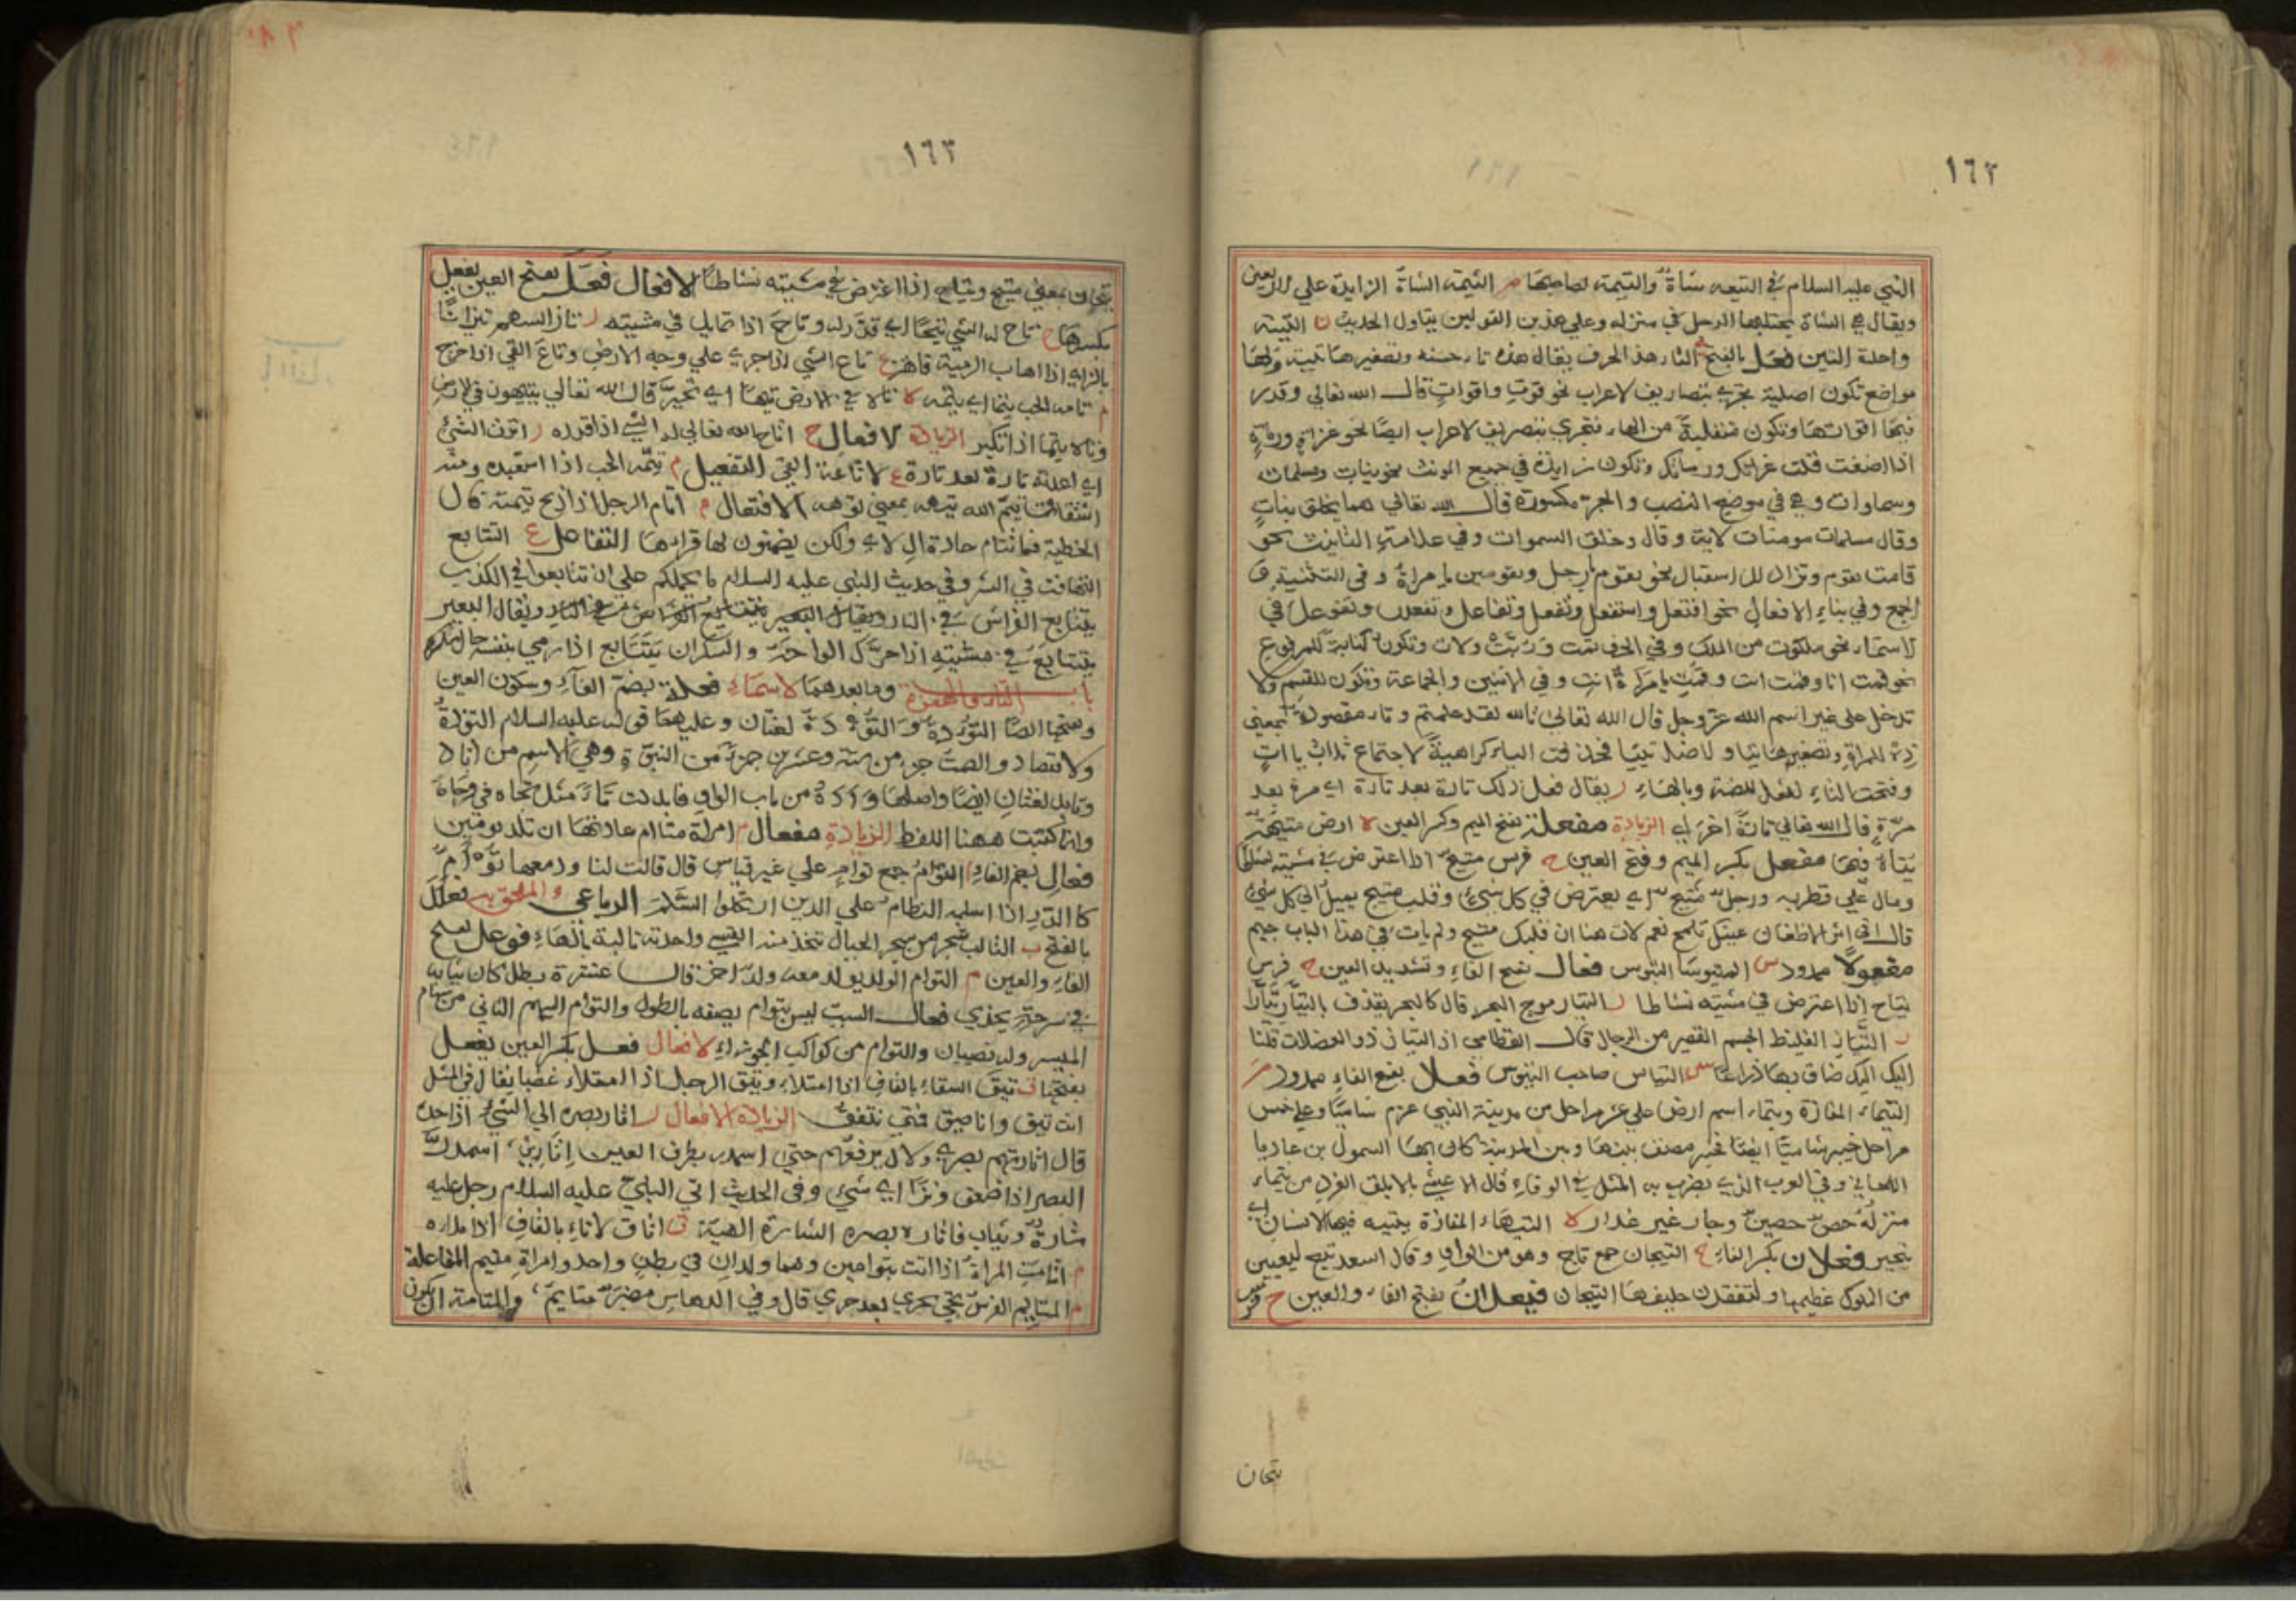 ١٦٢
النبي عليه السلام في التيعه شاة والتيمة لصاحبها م التيمة الشاة الزايدة علي الاربعين
ويقال هي الشاة يحتلبها الرجل في منزله وعلي هذين القولين يتاول الحديث ن التينة
واحدة التين فعل بالفتح التار هذ الحرف يقال هذه تا حسنه وتصغيرها تيية ولها
مواضع تكون اصلية تجري بتصاريف الاعراب نحو قوت واقوات قال الله تعالي وقدر
فيها اقواتها وتكون منقلبة من الهاء فتجري بتصريف الاعراب ايضا نحو غزاة ورماة
اذا اضفت قلت غزاتك ورماتك وتكون زايدة في جميع المونث نحو بنات ومسلمات
وسماوات وهي في موضع النصب والجر مكسورة قال الله تعالي مما يخلق بنات
وقال مسلمات مومنات لاية وقال وخلق السموات وفي علامة التانيث نحو
قامت تقوم وتزاد للاستقبال نحو تقوم يا رجل وتقومين يا مراة وفي التثنية و
الجمع وفي بناء الافعال نحو افتعل واستفعل وتفعل وتفاعل وتفعلل وتفوعل في
لاسماء نحو ملكوت من الملك وفي الحرف ثمت وربت ولات وتكون كناية للمرفوع
نحو قمت انا وقمت انت وقمت يا مراة انت وفي الاثنين والجماعة وتكون للقسم ولا
تدخل علي غير اسم الله عز وجل قال الله تعالي تالله لقد علمتم وتا مقصورة بمعني
ذه للمراة وتصغيرها تيا والاصل تييا فحذفت الياء كراهية لاجتماع ثلاث يا ات
وفتحت التاء لفعل للضمة وبالهاء ر يقال فعل ذلك تارة بعد تارة اي مرة بعد
مرة قال الله تعالي تارة اخري الزيادة مفعلة بفتح الميم وكسر العين لا ارض متيهة
يتاه فيها مفعل بكسر الميم وفتح العين ح فرس متيح اذا اعترض في مشيته نشاطا
ومال علي قطريه ورجل متيح اي يعترض في كل شيء وقلب متيح يميل الي كل شيء
قال افي اثر الاظعان عينك تلمح نعم لات هنا ان قلبك متيح ولم يات في هذا الباب جيم
مفعولا ممدود س المتيوسا التيوس فعال بفتح الفاء وتشديد العين ح فرس
يتاح اذا اعترض في مشيته نشاطا ر التيار موج البحر قال كالبحر يقذف بالتيار تيارا
ز التياز الغليظ الجسم القصير من الرجال قال القطامي اذا التياز ذو العضلات قلنا
اليك اليك ضاق بها ذراعا س التياس صاحب التيوس فعلا بفتح الفاء ممدود م
التيماء المفازة وتيماء اسم ارض علي عشر مراحل من مدينة النبي عم شاميا وعلي خمس
مراحل خيبر شاميا ايضا بينها وبين المدينة كان بها السمول بن عاديا
الغساني وفي العرب الذي يضرب به المثل في الوفاء قال الاعشي بالابلق الفرد من تيماء
منزله حصن حصين وجار غير غدار لا التيهاء المفازة يتيه فيها الانسان اي
يتحير فعلان بكسر الفاء ح التيجان جمع تاج وهو من الواو وقال اسعد تبع
من الملوك عظيمها التيجان فيعلان بفتح الفاء والعين ح فرس
تيحان
١٦٣
تيحان بمعني متيح وتياح اذا اعترض في مشيته نشاطا لافعال فعل بفتح العين يفعل
بكسرها ح تاح له الشي تيحا اي قدر له وتاح اذا تمايل في مشيته ز تاز السهم تيزانا
بالزاي اذا اصاب الرمية فاهتز ع تاع الشي اذا جري علي وجه الارض وتاع القي اذا خرج
م تامه الحب تيما اي تيمه لا تاه في الارض تيها اي تحير قال الله تعالي يتيهون في الارض
وتاه تيها اذا تكبر الزيادة لافعال ح اتاح الله تعالي له الشي اذا قدره ر اتر ت الشي
اي اعدته تارة بعد تارة ع لا تاعة القي التفعيل م تيمه الحب اذا استعبده ومنه
اشتقاق تيم الله تيهه بمعني توهه الافتعال م اتام الرجل اذا ذبح تيمته قال
الحطية فما تتام جارة ال لاي ولكن يضمنون لها قراها التفاعل ع التتايع
التهافت في الشر وفي حديث النبي عليه السلام ما يحملكم علي ان تتايعوا في الكذب
يتتايع الفراش في النار ويقال البعير
يتتايع في مشيته اذا حرك الواحه والسكران يتتايع اذا رمي بنفسه
باب التاء والهمزة وما بعدهما لاسماء فعلة بضم الفاء وسكون العين
وبفتحها ايضا التؤدة والتؤدة لغتان وعليهما قوله عليه السلام التؤدة
والاقتصاد والصمت جزء من ستة وعشرين جزء من النبوة وهي الاسم من اتاد
وتايد لغتان ايضا واصلها وادة من باب الواو فابدلت تاء مثل تجاه في وجاه
وانما كتبت ههنا اللفظ الزيادة مفعال م امراة متام عادتها ان تلد تومين
فعال بضم الفاء م التوام جمع توام علي غير قياس قال قالت لنا ودمعها توام
كالدر اذا اسلمه النظام علي الذين ارتحلوا السلام الرباعي والملحق به فعلل
بالفتح ب التالب شجر من شجر الجبال تتخذ منه القسي واحدته تالبة بالهاء فوعل بفتح
الفاء والعين م التوام الولد يولد معه ولد اخر قال عنترة بطل كان ثيابه
في سرحة يحذي فعال السبت ليس بتوام يصفه بالطول والتوام السهم الثاني من سهام
الميسر وله نصيبان والتوام من كواكب الجوزاء لافعال فعل بكسر العين يفعل
بفتحها ق تيق السقاء بالقاف اذا امتلاء وتيق الرجل اذا امتلاء غضبا يقال في المثل
انت تيق وانا ميق فمتي نتفق الزيادة الافعال ر اتار بصره الي الشي اذا حده
قال اتارتهم بصري والال يرفعهم حتي اسمدر بطرف العين اتاري، اسمدر
البصر اذا ضعف ونزا اي شيء وفي الحديث اتي النبي عليه السلام رجل عليه
شارة وثياب فاتاره بصره الشارة الهيئة ق اتاق لاناء بالقاف اذا ملاه
م اتامت المراة اذا اتت بتوامين وهما ولدان في بطن واحد وامراة متيم المفاعلة
م المتايم الفرس يجي بجري بعد جري قال وفي الدهاس مضبر متايم، والمتامة ان يكون